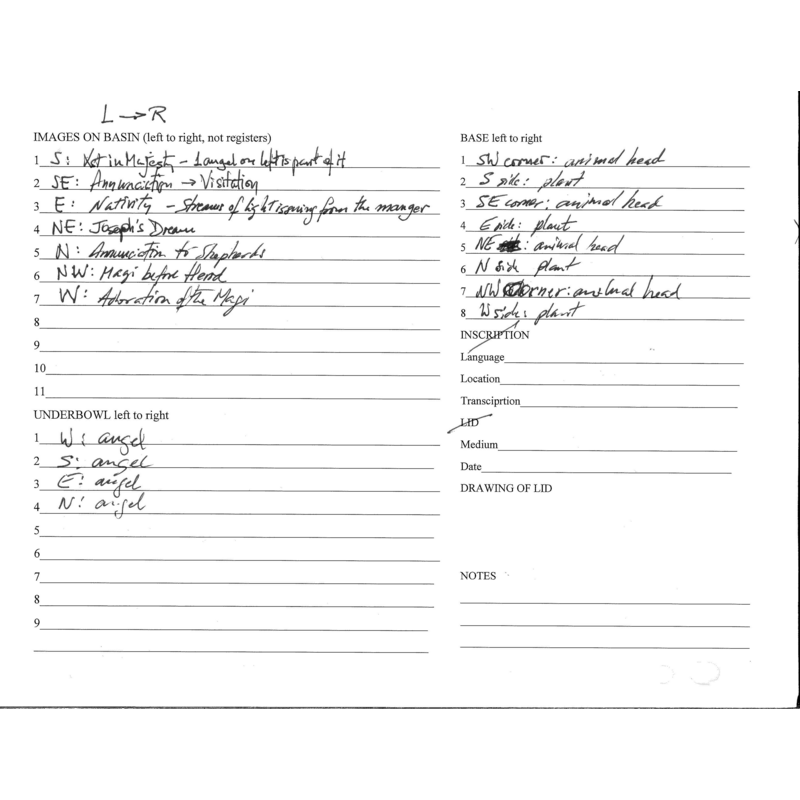 L → R
IMAGES ON BASIN (left to right, not registers)
1 S: Xst in Majesty – 1 angel on left is part of it
2 SE: Annunciation → Visitation
3 E: Nativity – Streams of light issuing from the manger
4 NE: Joseph's Dream
5 N: Annunciation to Shepherds
6 NW: Magi before Herod
7 W: Adoration of the Magi
8
9
10
11
UNDERBOWL left to right
1 W: angel
2 S: angel
3 E: angel
4 N: angel
5
6
7
8
9
BASE left to right
1 SW corner: animal head
2 S side: plant
3 SE corner: animal head
4 E side: plant
5 NE : animal head
6 N side plant
7 NW corner: animal head
8 W side: plant
INSCRIPTION
Language
Location
Transciprtion
LID
Medium
Date
DRAWING OF LID
NOTES